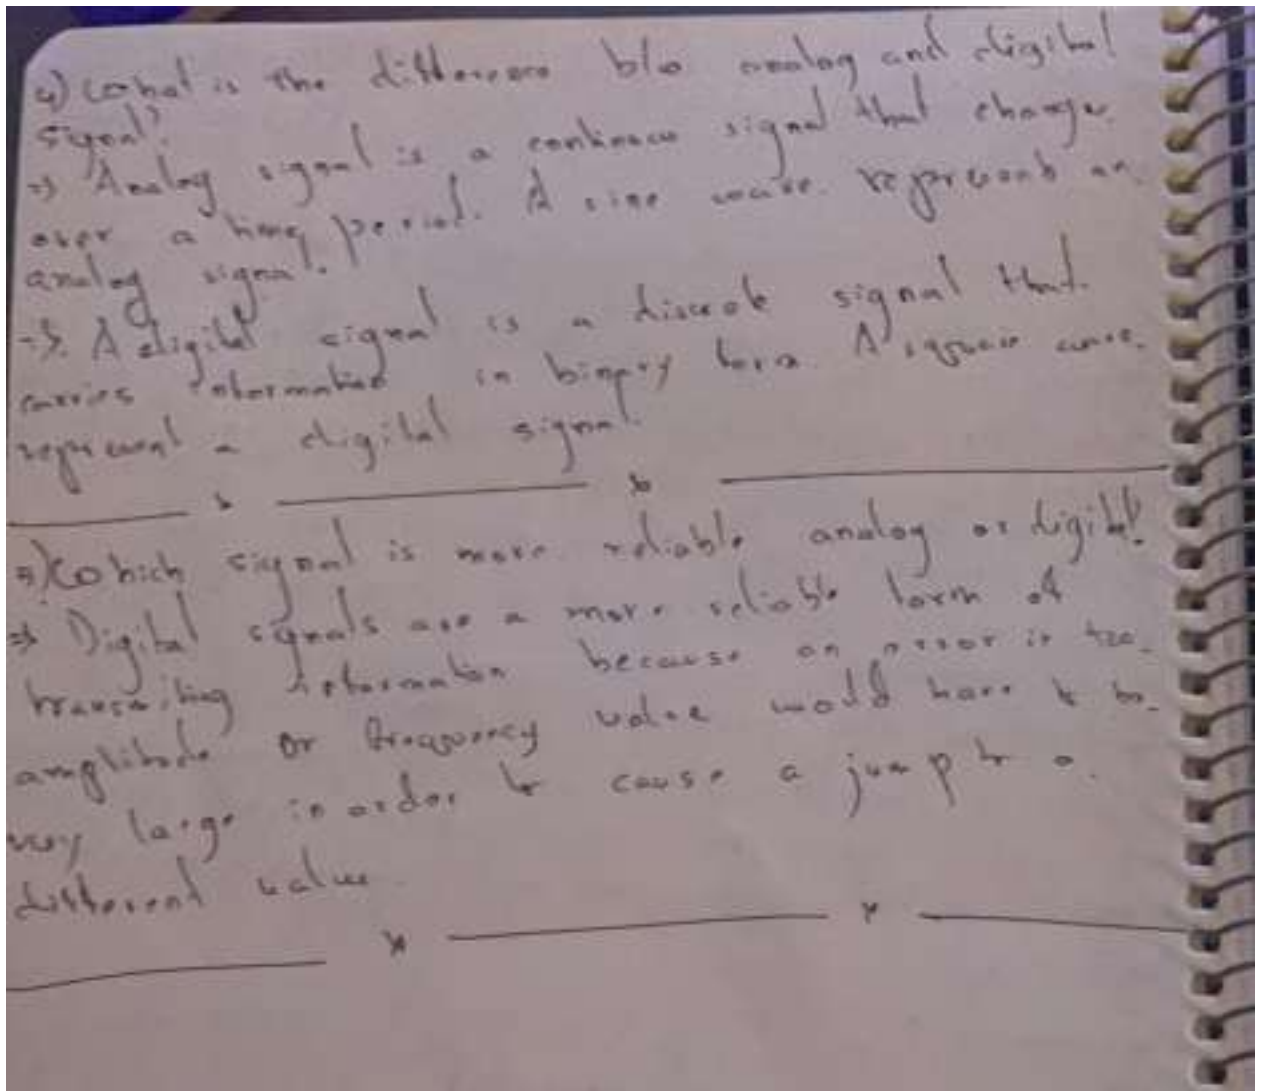 4) What is the difference b/w analog and digital
signal?
=> Analog signal is a continuous signal that change
over a time period. A sine wave represents an
analog signal.
-> A digital signal is a discrete signal that
carries information in binary form. A square wave
represent a digital signal.
5) Which signal is more reliable analog or digital?
=> Digital signals are a more reliable form of
transmitting information because an error in the
amplitude or frequency value would have to be
very large in order to cause a jump to a
different value.